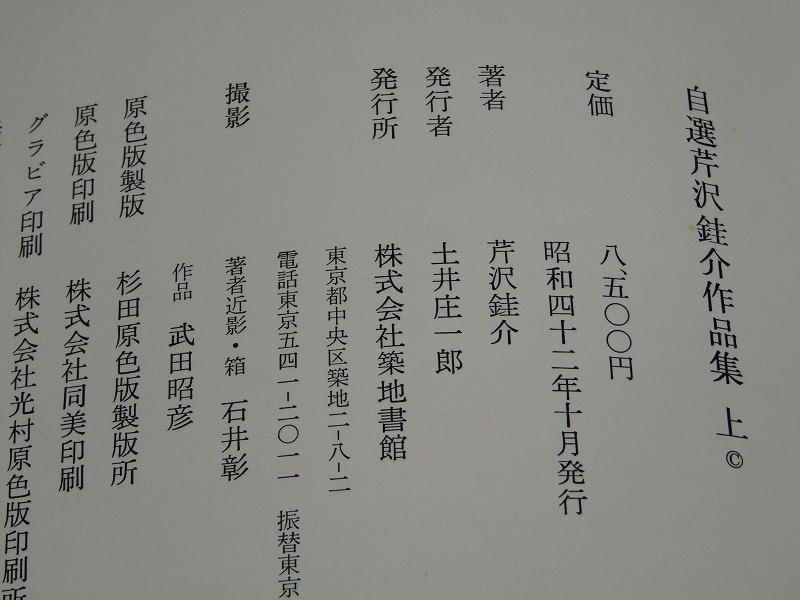 自選芹沢銈介作品集 上 ©
定価 八、五〇〇円
昭和四十二年十月発行
著者 芹沢銈介
発行者 土井庄一郎
発行所 株式会社築地書館
東京都中央区築地二-八-二
電話東京五四一-二〇一一 振替東京
撮影 著者近影・箱 石井彰
作品 武田昭彦
原色版製版 杉田原色版製版所
原色版印刷 株式会社同美印刷
グラビア印刷 株式会社光村原色版印刷所